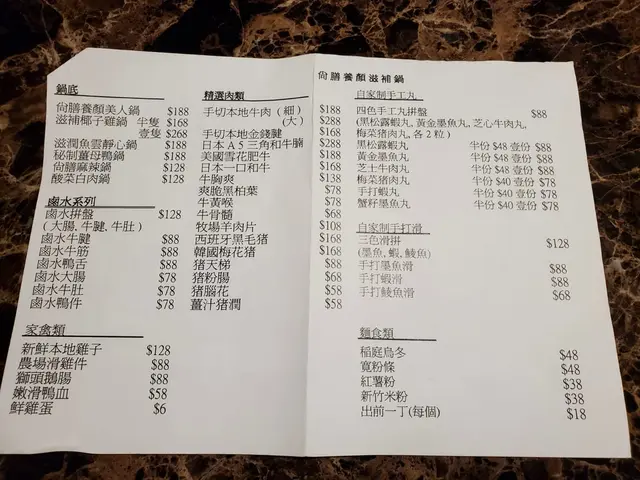 鍋底
尙膳養顏美人鍋 $188
滋補椰子雞鍋 半隻 $168
壹隻 $268
滋潤魚雲靜心鍋 $188
秘制薑母鴨鍋 $188
尙膳麻辣鍋 $128
酸菜白肉鍋 $128
鹵水系列
鹵水拼盤 $128
(大腸、牛腱、牛肚)
鹵水牛腱 $88
鹵水牛筋 $88
鹵水鴨舌 $88
鹵水大腸 $78
鹵水牛肚 $78
鹵水鴨件 $78
家禽類
新鮮本地雞子 $128
農場滑雞件 $88
獅頭鵝腸 $88
嫩滑鴨血 $58
鮮雞蛋 $6
精選肉類
手切本地牛肉(細) $188
(大) $288
手切本地金錢腱 $168
日本A5三角和牛腩 $288
美國雪花肥牛 $188
日本一口和牛 $168
牛胸爽 $138
爽脆黑柏葉 $78
牛黃喉 $78
牛骨髓 $78
牧場羊肉片 $108
西班牙黑毛猪 $168
韓國梅花猪 $168
猪天梯 $88
猪粉腸 $68
猪腦花 $58
薑汁猪潤 $58
尙膳養顏滋補鍋
自家制手工丸
四色手工丸拼盤 $88
(黑松露蝦丸, 黃金墨魚丸, 芝心牛肉丸,
梅菜猪肉丸, 各2粒)
黑松露蝦丸 半份 $48 壹份 $88
黃金墨魚丸 半份 $48 壹份 $88
芝士牛肉丸 半份 $48 壹份 $88
梅菜猪肉丸 半份 $40 壹份 $78
手打蝦丸 半份 $40 壹份 $78
蟹籽墨魚丸 半份 $40 壹份 $78
自家制手打滑
三色滑拼 $128
(墨魚, 蝦, 鯪魚)
手打墨魚滑 $88
手打蝦滑 $88
手打鯪魚滑 $68
麵食類
稻庭烏冬 $48
寬粉條 $48
紅薯粉 $38
新竹米粉 $38
出前一丁(每個) $18